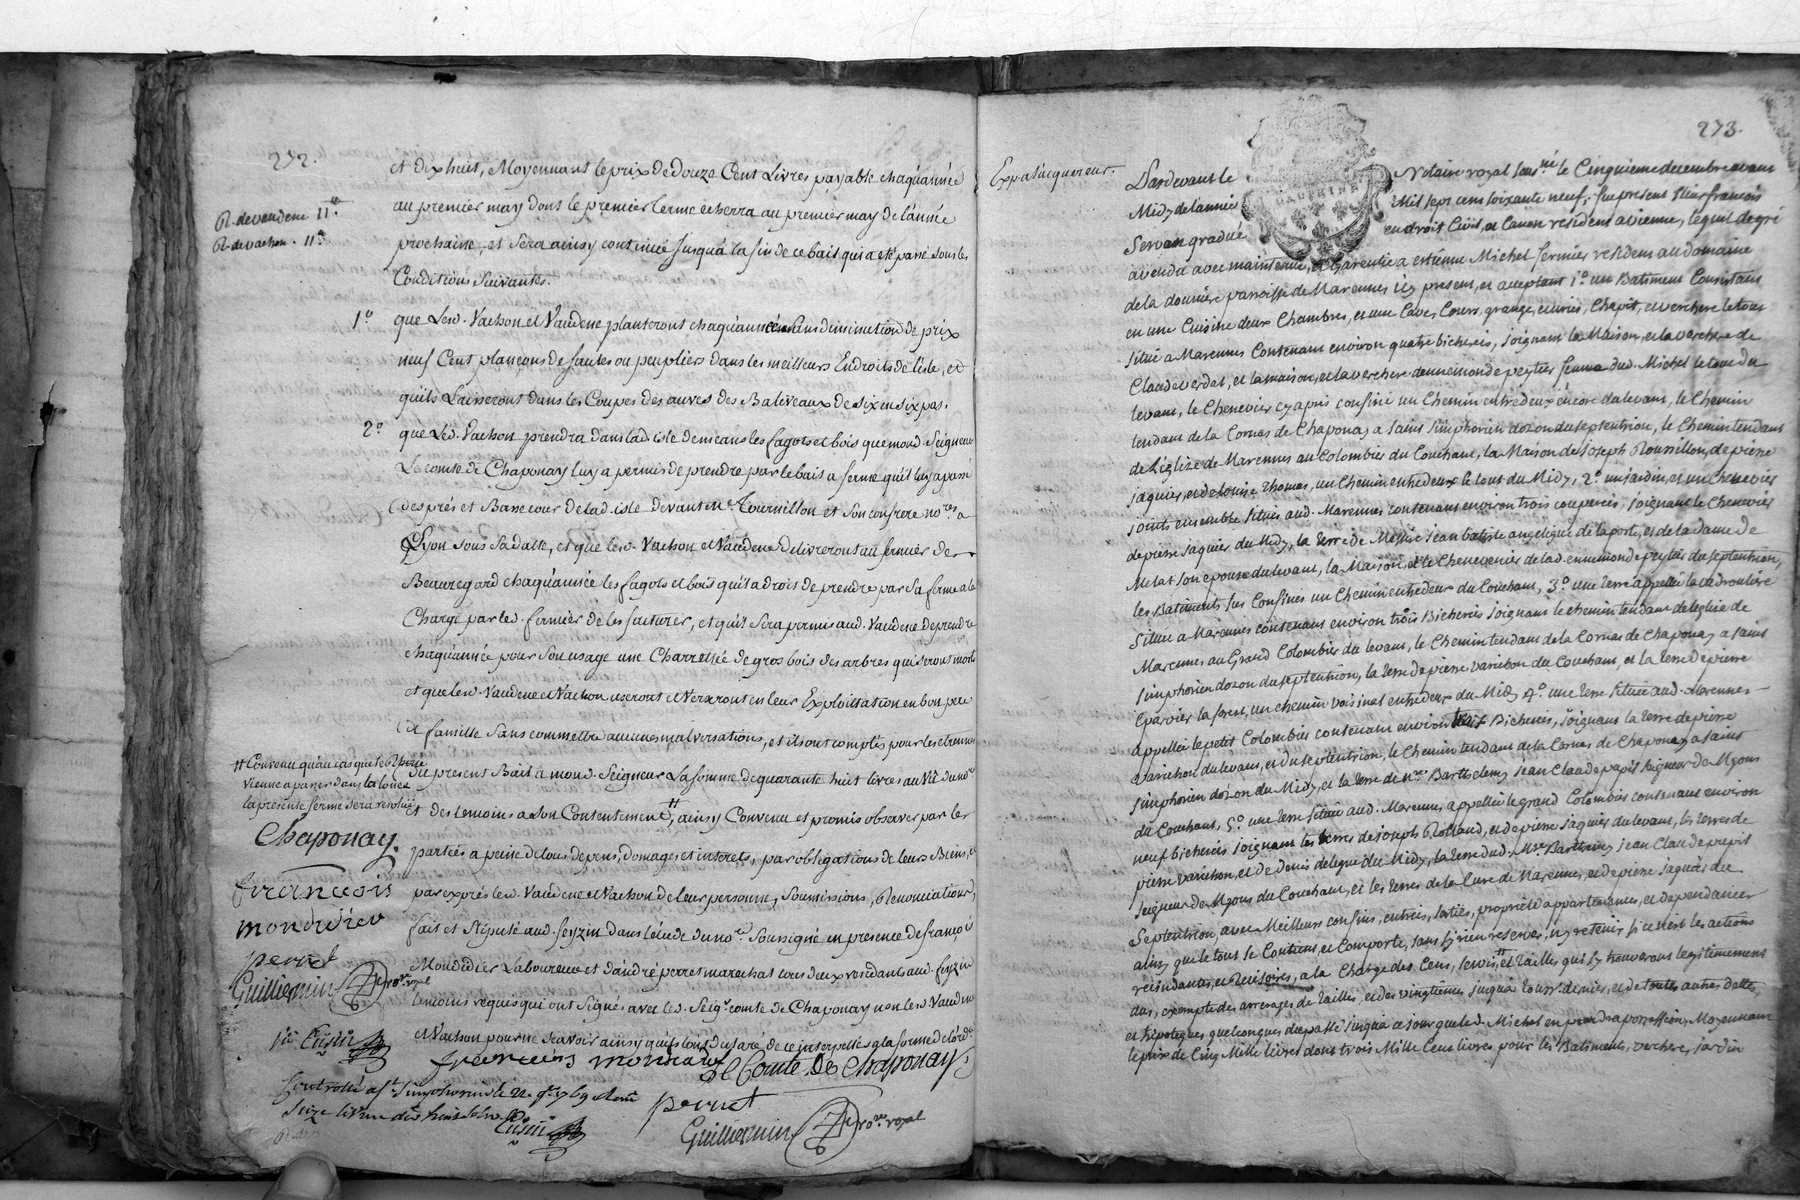 272.
R. de vaudene 11#
R. de vachon. 11#
et dix huit, Moyennant le prix de douze Cent Livres payable chaqu'année
au premier may dont le premier terme echerra au premier may de l'année
prochaine, et sera ainsy continué jusqu'à la fin de ce bail qui a eté passé sous les
Conditions suivantes.
1.º que Lesd. Vachon et Vaudene planteront chaqu'année sans diminution de prix
neuf Cent plançons de saules ou peupliers dans les meilleurs Endroits de l'isle, et
qu'ils Laisseront dans les Coupes des auves des Baliveaux de six en six pas.
2.º que Led. Vachon prendra dans lad. isle les fagots et bois que mond. Seigneur
Le comte de Chaponay luy a permis de prendre par le bail a ferme qu'il luy a passé
des prés et Bassecour de lad. isle devant Me. Tournillon et son confrere nores a
Lyon sous sa datte, et que lesd. Vachon et Vaudene delivreront au fermier de
Beauregard chaqu'année les fagots et bois qu'il a droit de prendre par sa ferme a la
Charge par led. fermier de les facturer, et qu'il sera permis aud. Vaudene de prendre
chaqu'année pour son usage une Charretée de gros bois des arbres qui seront morts
et que lesd. Vaudene et Vachon useront et en leur Exploittation en bon pere
de famille sans commettre aucunes malversations, et ils ont compté pour les etrennes
du present Bail a mond. Seigneur La somme de quarante huit livres au Vû dud. nore
et des temoins a son Contentement #, ainsy Convenu et promis observer par les
parties a peine de tous depens, domages et interets, par obligations de leurs Biens, et
par exprés lesd. Vaudene et Vachon de leur personne, soumissions, Renonciations,
fait et stipulé aud. feyzin dans l'etude du nore. soussigné en presence de françois
Mondidier Laboureur et d'andré perret marechal tous deux residants aud. feyzin
temoins requis qui ont signé avec led. Seigr. comte de Chaponay non lesd. Vaudene
et Vachon pour ne sçavoir ainsy qu'ils l'ont declaré de ce interpellés a la forme de l'ord.ce
# Convenu qu'au cas que le Rhône
vienne a passer dans la lone
la presente ferme sera resolue
Chaponay.
francois
mondidier
perret
Guillermin nore. royal
francois mondidier Le Comte De Chaponay
perret
Guillermin nore. royal
Controllé a St. Simphorien le
273.
Exp. a l'acquereur.
DAUPHINE
Pardevant le Notaire royal sousné. le Cinquieme decembre avant
Midy de l'année Mil sept cent soixante neuf, fut present Sieur françois
Servan gradué en droit Civil, et Canon resident a vienne, lequel de gré
a vendu avec maintenue, et Garentie a estienne Michel fermier resident au domaine
de la dourière parroisse de Marennes icy present, et acceptant 1.º un Batiment Consistant
en une Cuisine deux Chambres, et une Cave, Cours, grange, ecuries, Chapit, et verchere le tout
situé a Marennes Contenant environ quatre bicherées, joignant la Maison, et la verchere de
Claude verdet, et la maison, et la verchere d'ennemonde peytier femme dud. Michel le tout du
levant, le Chenevier cy après confiné un Chemin entredeux encore du levant, le Chemin
tendant de la Cornas de Chaponay a saint simphorien dozon du septentrion, le Chemin tendant
de l'eglize de Marennes au Colombier du Couchant, la Maison de Joseph Roussillon, de pierre
jaquier, et de louise Thomas, un Chemin entredeux le tout du Midy, 2.º un jardin, et un Chenevier
joints ensemble situés aud. Marennes contenant environ trois couperées, joignant le Chenevier
de pierre jaquier du Midy, la terre de Messire jean batiste angelique de laporte, et de la dame de
Murat son epouse du levant, la Maison, et le Chenevier de lad. ennemonde peytier du septentrion,
les Batiments sus Confinés un Chemin entredeux du Couchant, 3.º une terre appellée la
situé a Marennes contenant environ trois Bicherées joignant le chemin tendant de l'eglise de
Marennes au Grand Colombier du levant, le Chemin tendant de la Cornas de Chaponay a saint
simphorien dozon du septentrion, la terre de pierre varichon du Couchant, et la terre de pierre
Eparvier laforest, un chemin voisinal entredeux du Midy 4.º une terre située aud. Marennes
appellée le petit Colombier contenant environ trois Bicherées, joignant la terre de pierre
varichon du levant, et du septentrion, le Chemin tendant de la Cornas de Chaponay a saint
simphorien dozon du Midy, et la terre de Mre. Barthelemy jean Claude pupil seigneur de Myons
du Couchant, 5.º une terre située aud. Marennes appellée le grand Colombier contenant environ
neuf bicherées joignant les terres de joseph Rolland, et de pierre jaquier du levant, les terres de
pierre varichon, et de denis delegue du Midy, la terre dud. Mre. Barthelemy jean Claude pupil
seigneur de Myons du Couchant, et les terres de la Cure de Marennes, et de pierre jaquier du
Septentrion, avec Meilleurs confins, entrées, sorties, proprieté appartenances, et dependances
ainsy que le tous se Contient, et Comporte, sans s'y rien reserver, ny retenir si ce n'est les actions
rescindantes, et Rescisoires, a la Charge des Cens, servis, # et tailles qui s'y trouveront legitimement
dus, exempts de arrerages de tailles, et des vingtiemes jusqu'a tous derniers, et de toutes autres dettes,
et hipoteques quelconques du passé jusqu'a ce jour que led. Michel en prendra possession, Moyennant
le prix de Cinq Mille livres dont trois Mille Cent livres pour les Batiments, verchere, jardin